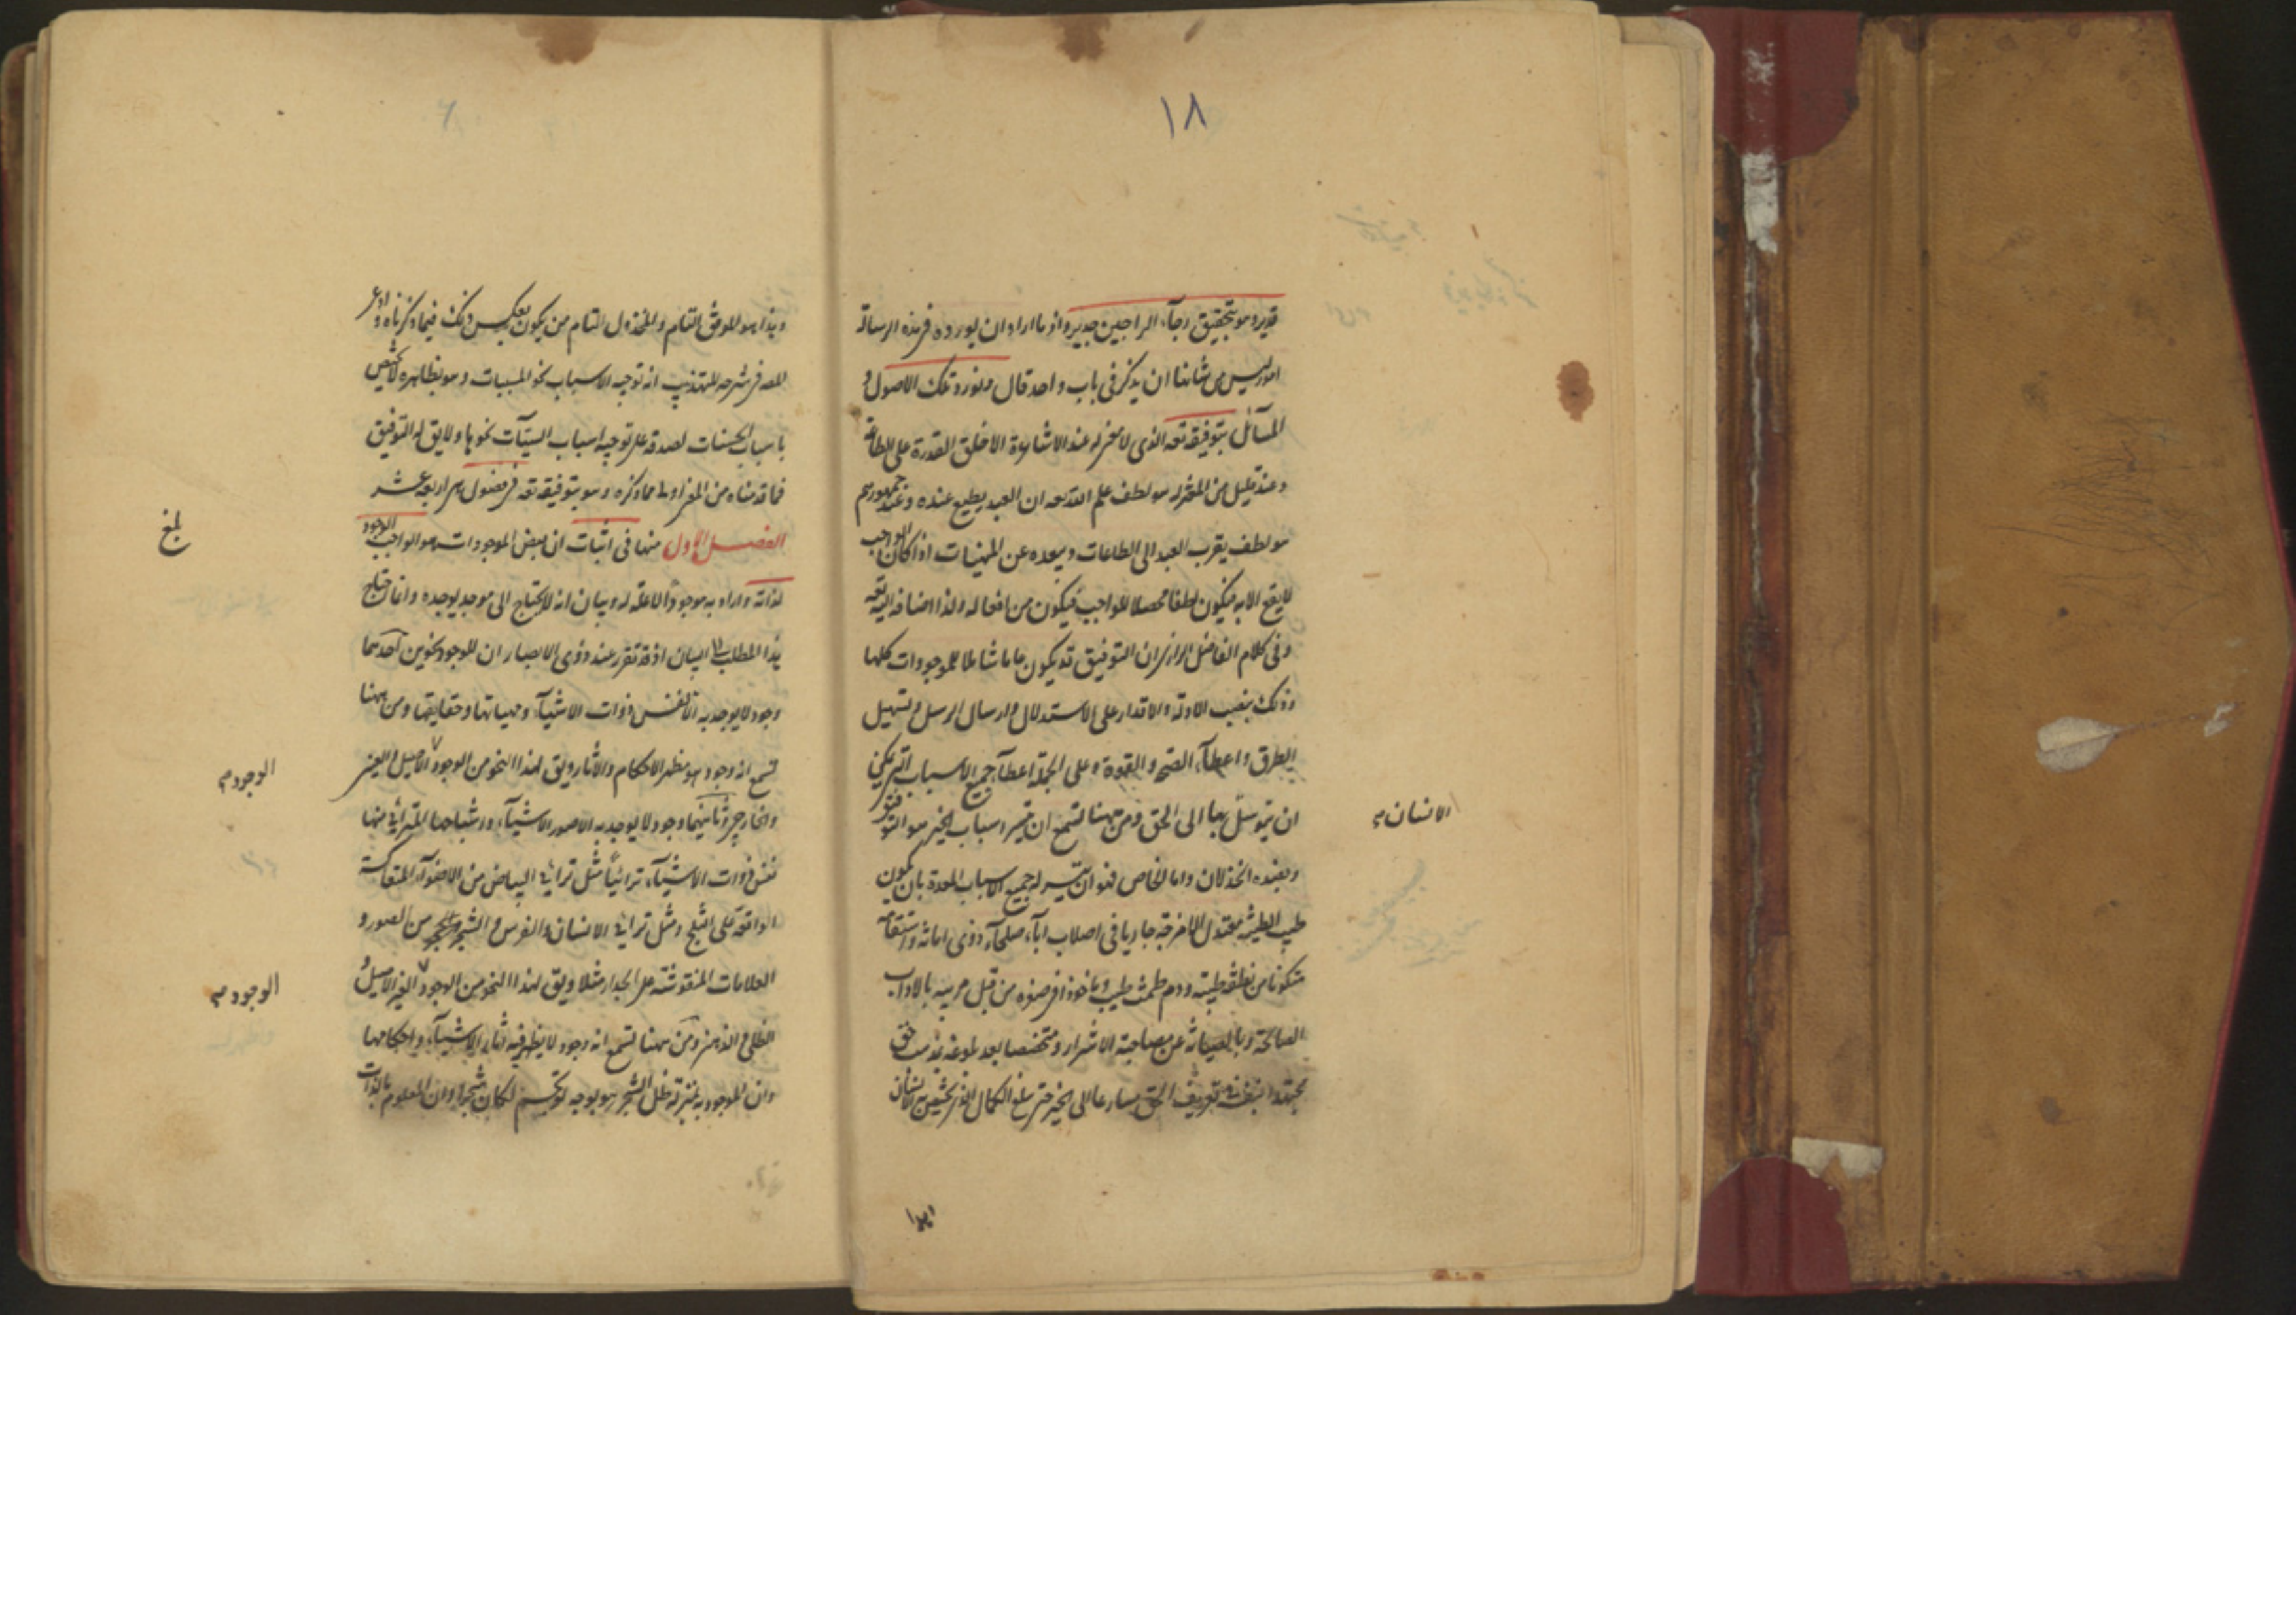 ١٨
قدير وهو بتحقيق رجآء الراجين جدير واذ ما اراد ان يورده فى هذه الرسالة
امور ليس من شانها ان يذكر فى باب واحد قال ونورد تلك الاصول و
المسآئل بتوفيقه تعه الذى لا معنى له عند الاشاعرة الا خلق القدرة على الطاعة
وعند قليل من المعتزله هو لطف علم الله تعه ان العبد يطيع عنده وعند جمهورهم
هو لطف يقرب العبد الى الطاعات ويبعده عن المنهيات اذا كان الواجب
لا يقع الا به فيكون لطفا محصلا للواجب فيكون من افعاله ولذا اضافه اليه تعه
وفى كلام الفاضل الرازى ان التوفيق قد يكون عاما شاملا للموجودات كلها
وذلك بنصب الادلة والاقدار على الاستدلال وارسال الرسل وتسهيل
الطرق واعطآء الصحة والقوة وعلى الجملة اعطآء جميع الاسباب التى يمكن
ان يتوسل بها الى الحق ومن ههنا تسمع ان تيسر اسباب الخير هو التوفيق
وبضده الخذلان واما الخاص فهو ان تتيسر له جميع الاسباب المعدة بان يكون
طيب الطينة معتدل الامزجة جاريا فى اصلاب آبآء صلحآء ذوى امانة واستقامة
متكونا من نطفة طيبة ودم طمث طيب وماخوذا فى صغره من قبل مربيه بالاداب
الصالحة وبالصيانة عن مصاحبة الاشرار ومتخصصا بعد بلوغه بمذهب حق
مجتهدا بنفسه فى تعريف الحق مسارعا الى الخير حتى بلغ الكمال الذى يختص به الانسان
الانسان
وهذا هو الموفق التام والمخذول التام من يكون بعكس ذلك فيما ذكرناه وادعى
المصـ فى شرحه للتهذيب انه توجيه الاسباب نحو المسببات وهو بظاهره لا يختص
باسباب الحسنات لصدقه على توجيه اسباب السيئآت نحوها ولا يق له التوفيق
فما قدمناه من المعنى اولى مما ذكره وهو بتوفيقه تعه فى فصول هى اربعة عشر
الفصل الاول منها فى اثبات ان بعض الموجودات هو الواجب الوجود
لذاته واراد به موجودا لا علة له وبيان انه لا يحتاج الى موجد يوجده وانما احتاج
هذا المطلب الى البيان اذ قد تقرر عند ذوى الابصار ان للوجود نحوين احدهما
وجود لا يوجد به الا نفس ذوات الاشيآء ومهياتها وحقايقها ومن ههنا
تسمع انه وجود هو مظهر الاحكام والاثار ويق لهذا النحو من الوجود الاصيل والعينى
والخارجى وثانيهما وجود لا يوجد به الا صور الاشيآء واشباحها المترائية منها
نفس ذوات الاشيآء ترائيا مثل ترائى البياض من الاضوآء المنعكسة
الواقعة على الثلج ومثل ترائى الانسان والفرس والشجر والحجر من الصور و
العلامات المنقوشة على الجدار مثلا ويق لهذا النحو من الوجود الغير الاصيل و
الظلى والذهنى ومن ههنا تسمع انه وجود لا يظهر فيه اثار الاشيآء واحكامها
وان الموجود به بمنزلة ظل الشجر هو بوجه لو تجسم لكان شجرا وان المعلوم بالذات
بلغ
الوجود
الوجود